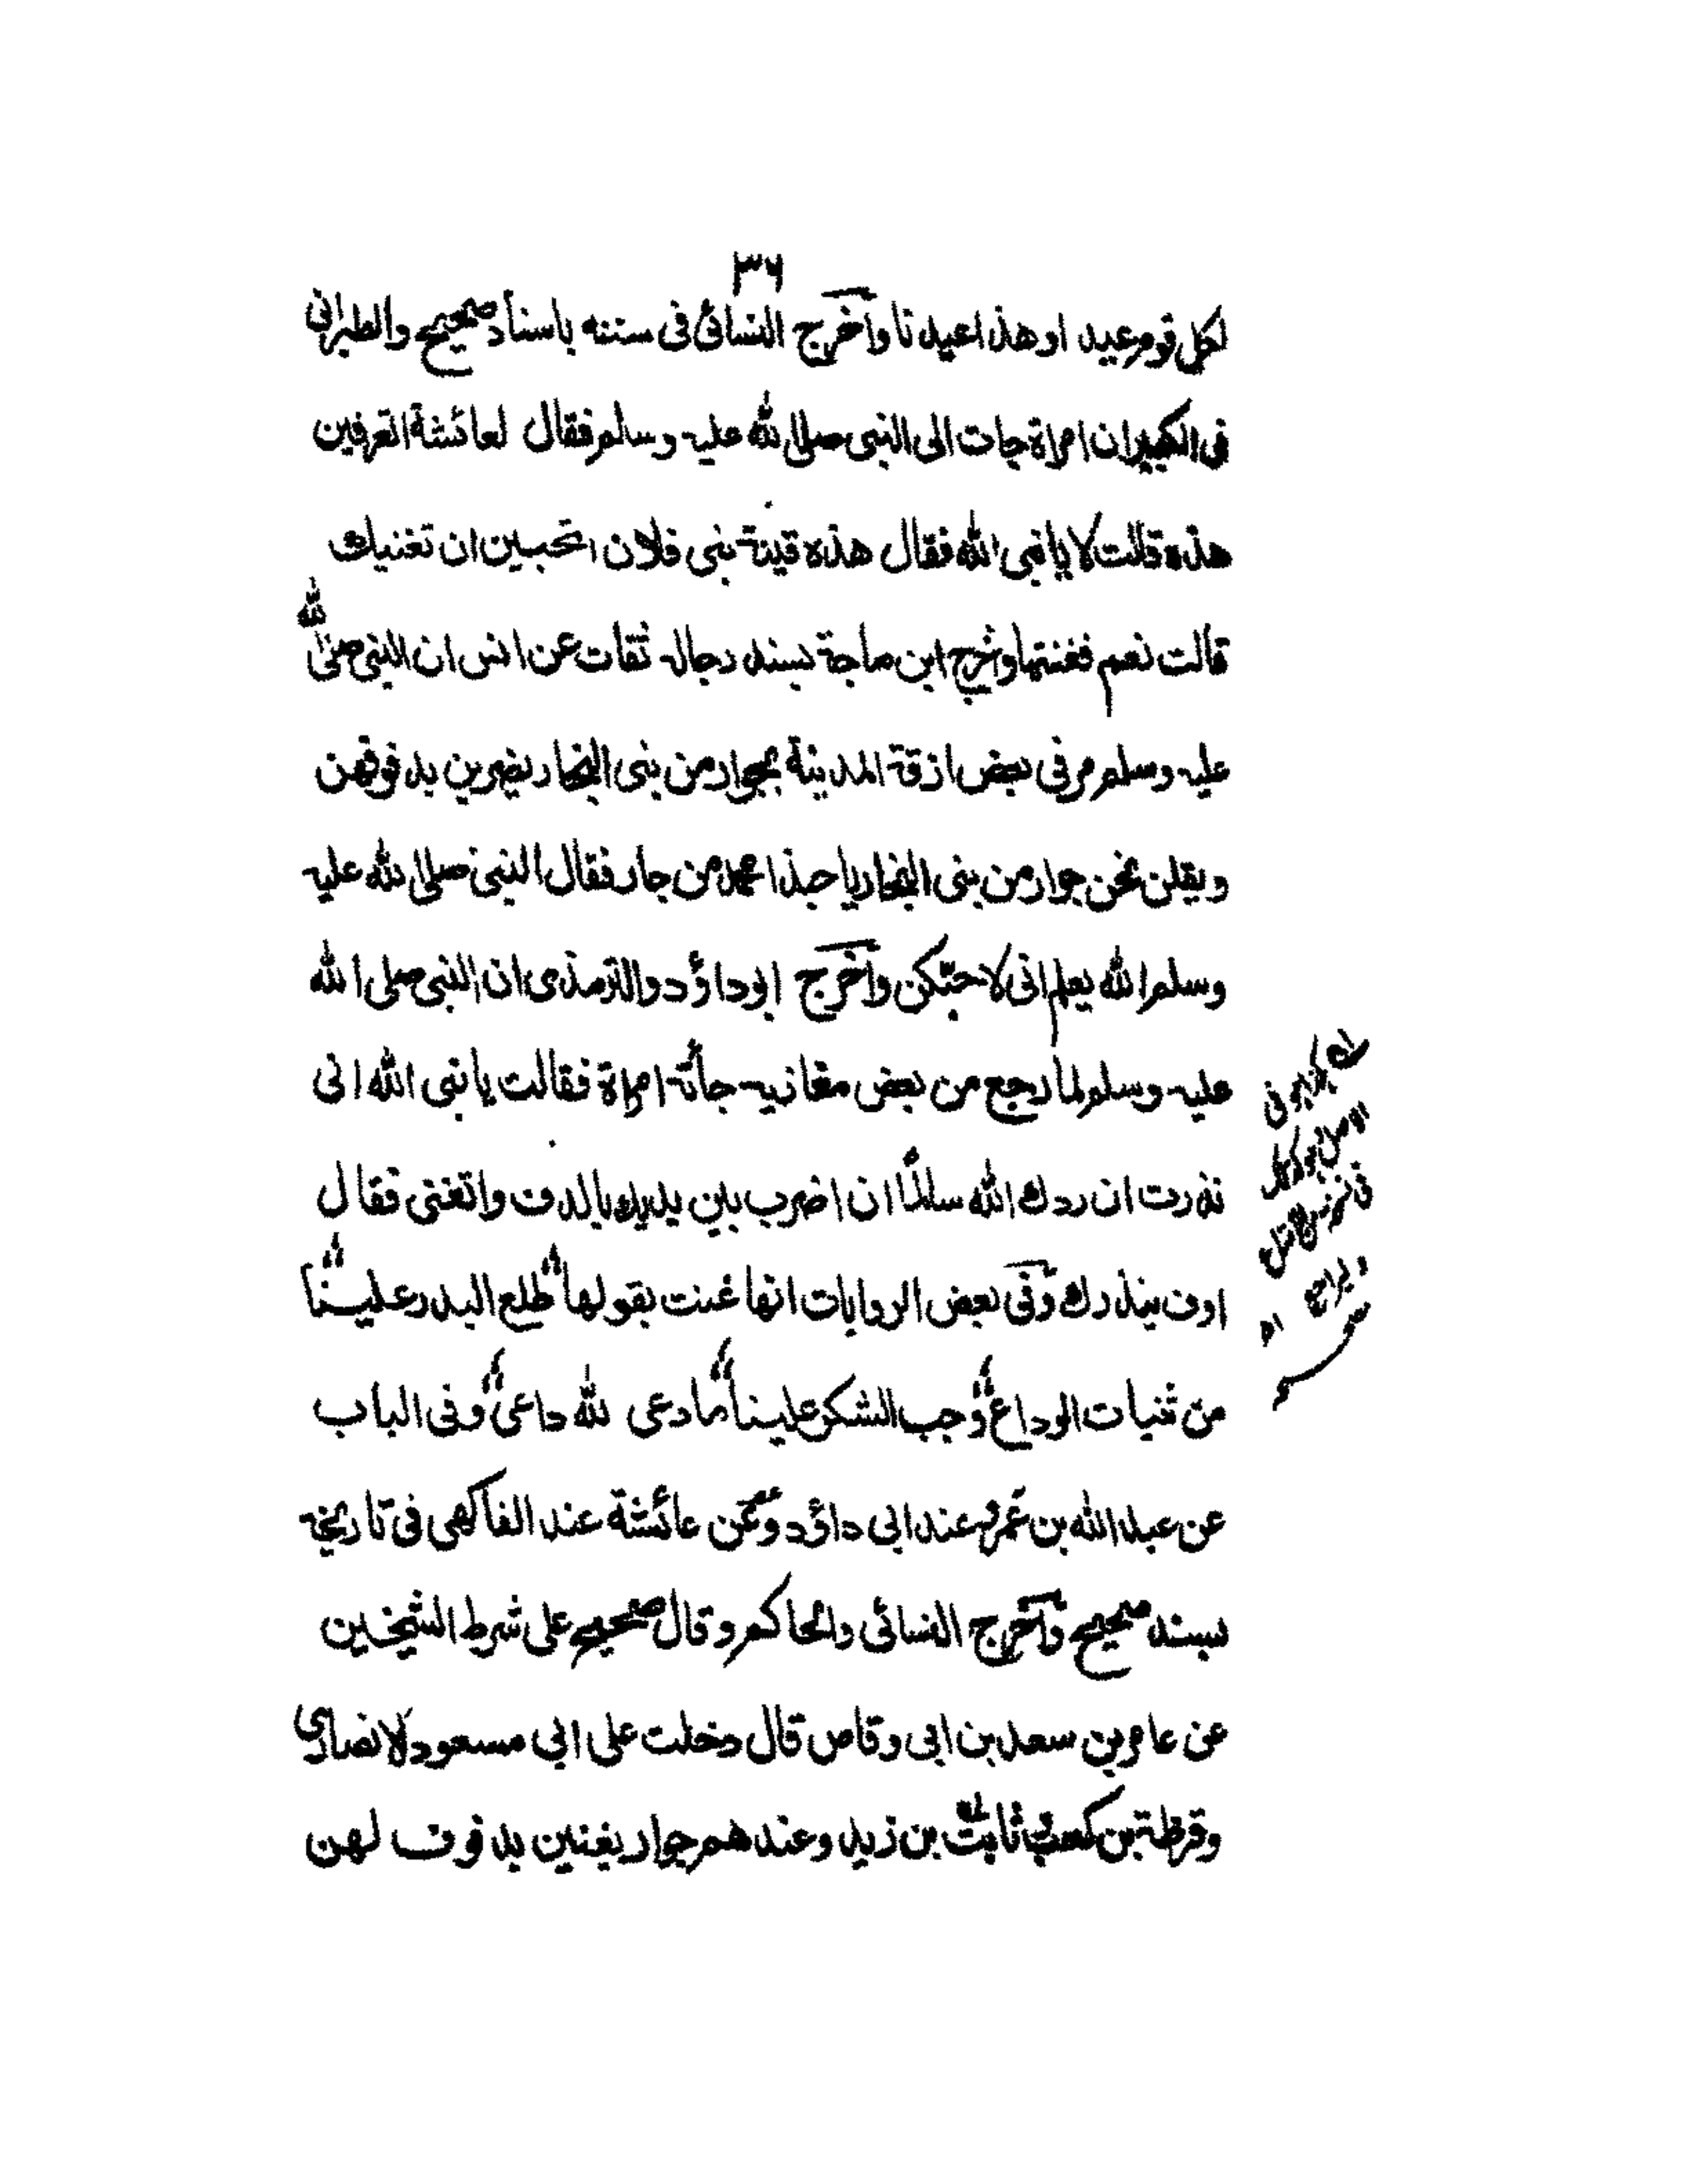 ٣٦
لكل قوم عيد او هذا عيدنا واخرج النسائى فى سننه باسناد صحيح والطبرانى
فى الكبير ان امراة جات الى النبى صلى الله عليه وسلم فقال لعائشة اتعرفين
هذه قالت لا يا نبى الله فقال هذه قينة بنى فلان اتحبين ان تغنيك
قالت نعم فغنتها وخرج ابن ماجة بسند رجاله ثقات عن انس ان النبى صلى الله
عليه وسلم مر فى بعض ازقة المدينة بجوار من بنى النجار يضربن بدفوفهن
ويقلن نحن جوار من بنى النجار يا حبذا محمد من جار فقال النبى صلى الله عليه
وسلم الله يعلم انى لاحبّكن واخرج ابوداؤد والترمذى ان النبى صلى الله
عليه وسلم لما رجع من بعض مغازيه جأته امراة فقالت يا نبى الله انى
نذرت ان ردك الله سالمًا ان اضرب بين يديك بالدف واتغنى فقال
اوف بنذرك وفى بعض الروايات انها غنت بقولها "طلع البدر علينا"
من ثنيات الوداع" وجب الشكر علينا" ما دعى لله داعى" وفى الباب
عن عبد الله بن عمرو عند ابى داؤد وعن عائشة عند الفاكهى فى تاريخه
بسند صحيح واخرج النسائى والحاكم وقال صحيح على شرط الشيخين
عن عامر بن سعد بن ابى وقاص قال دخلت على ابي مسعود الانصارى
وقرظة بن كعب وثابت بن زيد وعندهم جوار يغنين بدفوف لهن